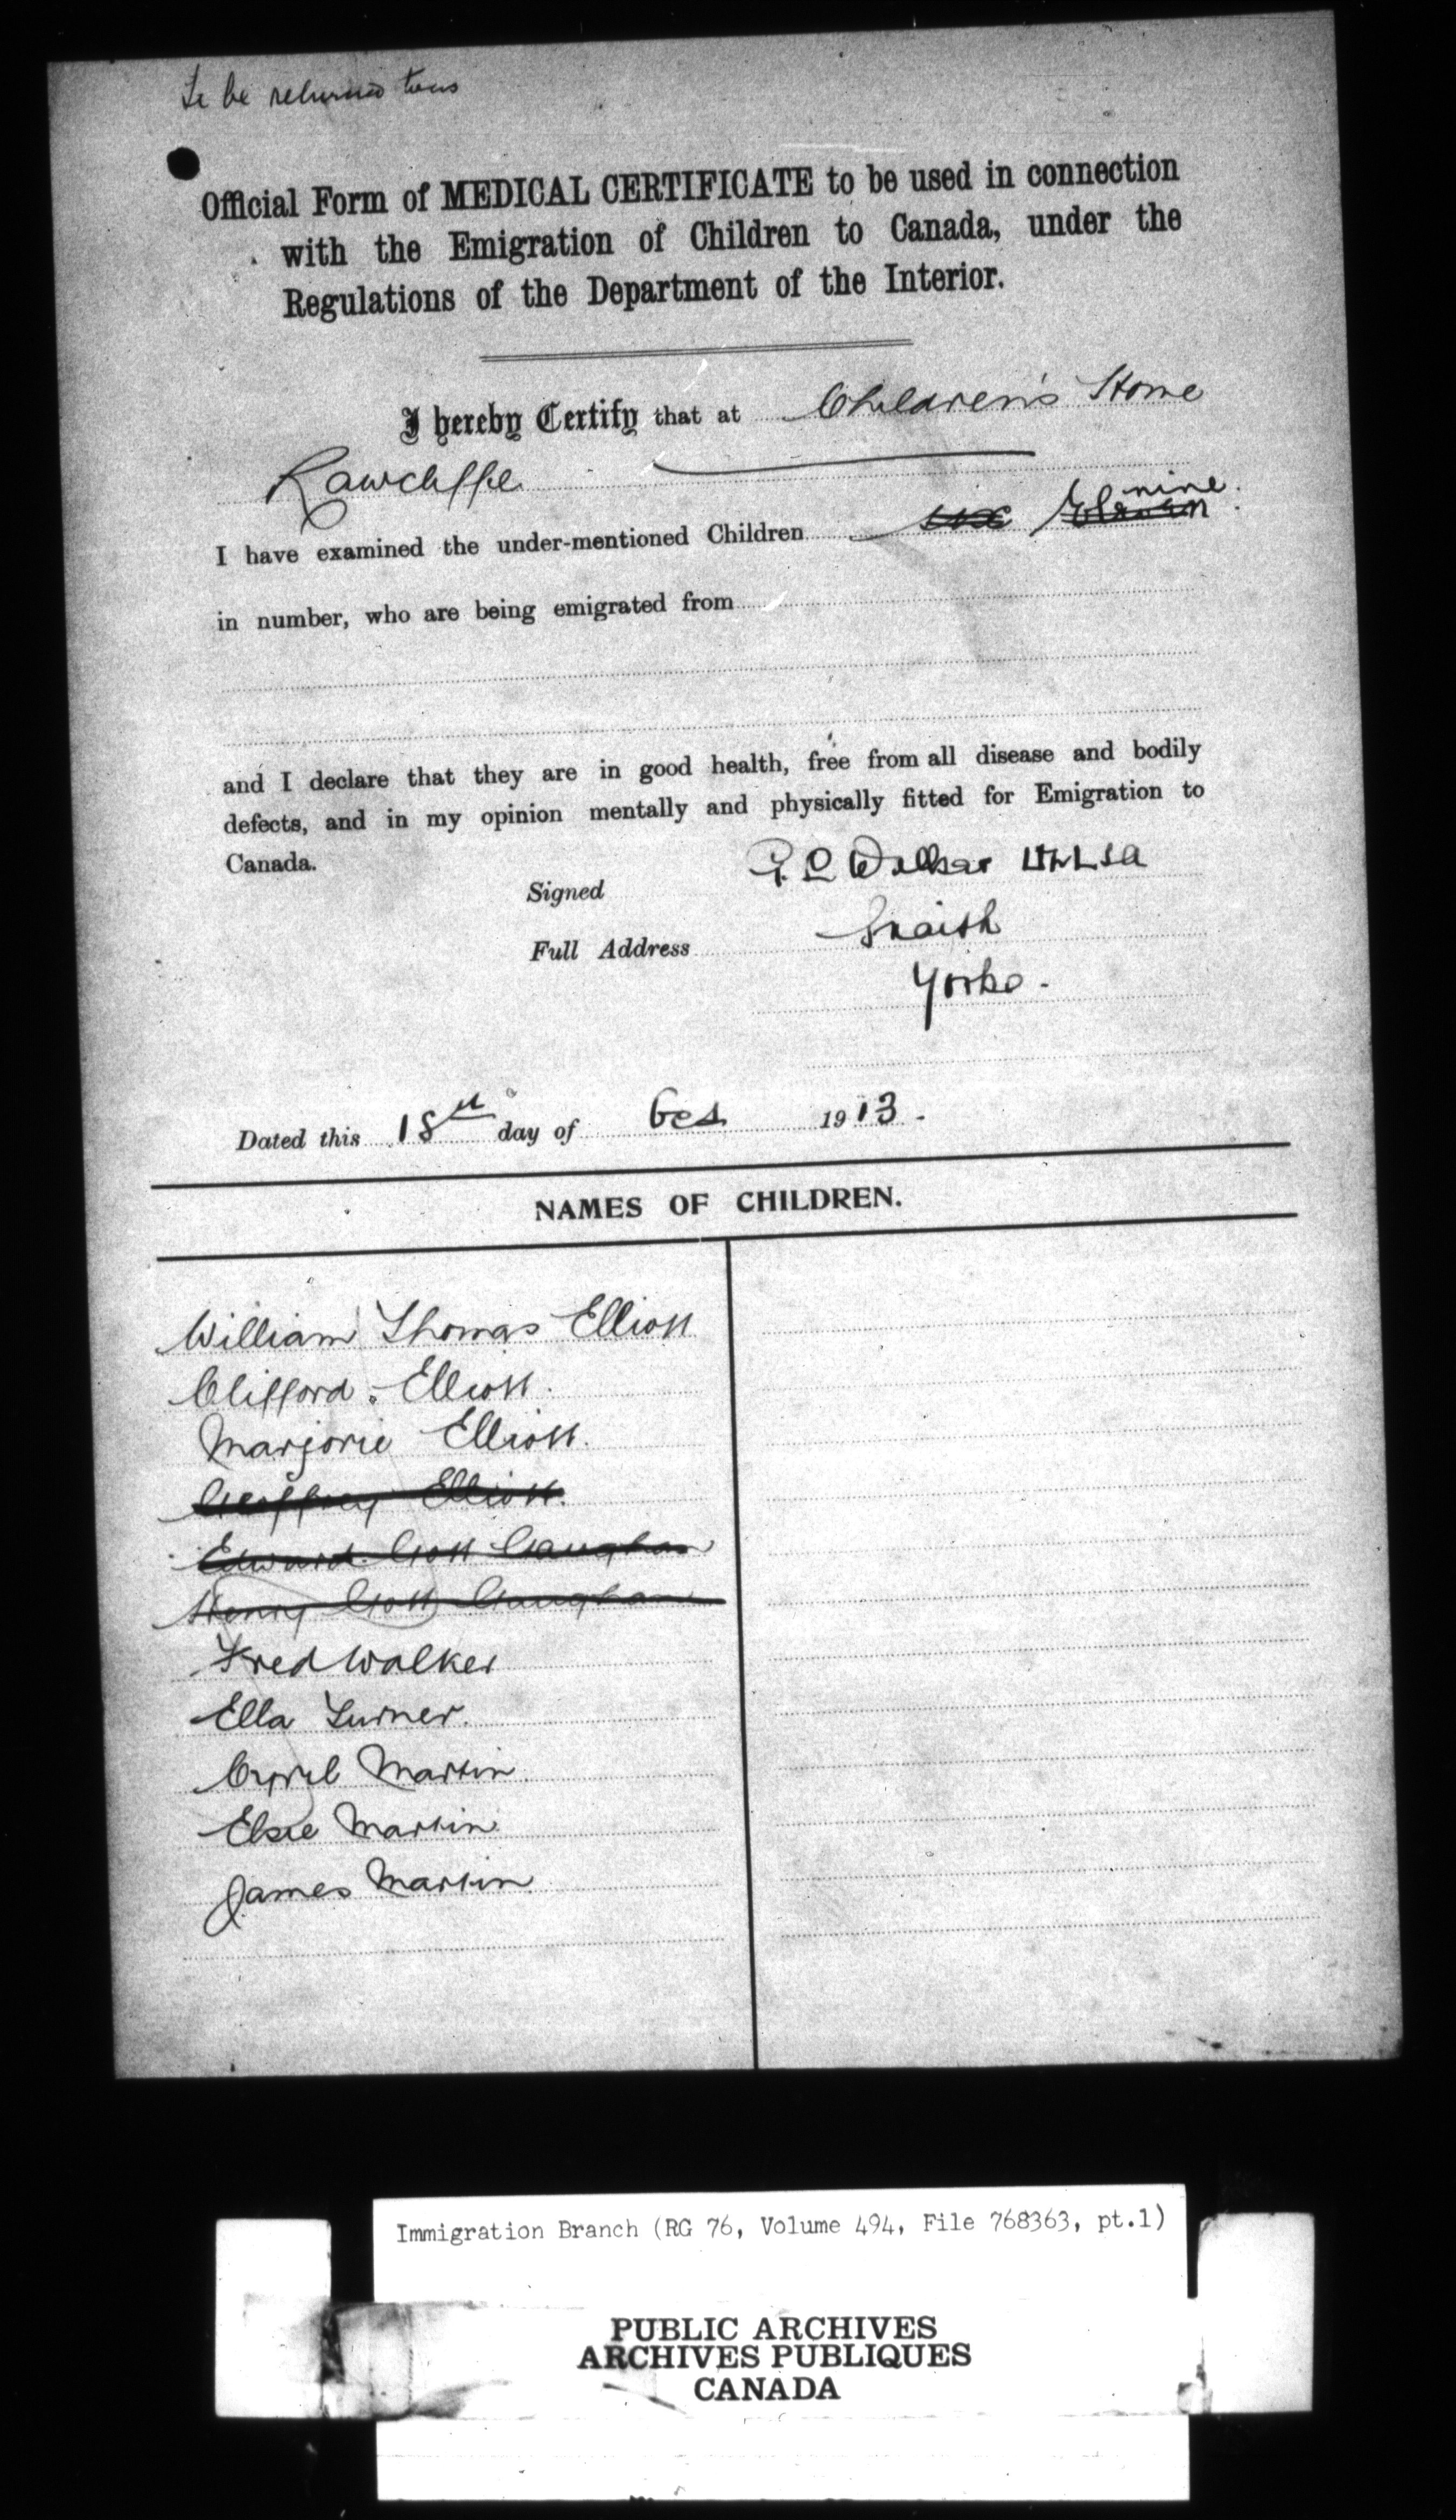 To be returned to us
Official Form of MEDICAL CERTIFICATE to be used in connection
with the Emigration of Children to Canada, under the
Regulations of the Department of the Interior.
I hereby Certify that at Children's Home
Rawcliffe
nine.
I have examined the under-mentioned Children six Eleven
in number, who are being emigrated from
and I declare that they are in good health, free from all disease and bodily
defects, and in my opinion mentally and physically fitted for Emigration to
Canada.
Signed Walker
Full Address Snaith
Yorks.
Dated this 18th day of 1913.
NAMES OF CHILDREN.
William Thomas Elliott
Clifford. Elliott.
Marjorie Elliott.
Geoffrey Elliott.
Edward Gott Gaughan
Henry Gott Gaughan
Fred Walker
Ella Turner.
Cyril Martin.
Elsie Martin.
James Martin.
Immigration Branch (RG 76, Volume 494, File 768363, pt.1)
PUBLIC ARCHIVES
ARCHIVES PUBLIQUES
CANADA